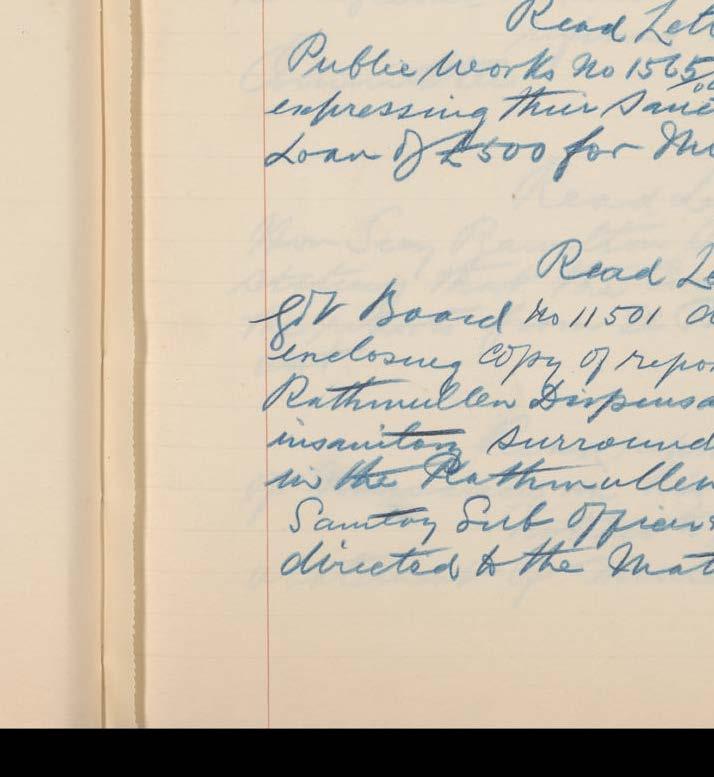 Read Lett
Public Works No 1565/
expressing their Sanc
Loan of £500 for
Read Le
Govt Board No 11501 d
enclosing Copy of repor
Rathmullen Dispensa
insanitary Surround
in the Rathmullen
Sanitay Sub Officer
directed to the Mat